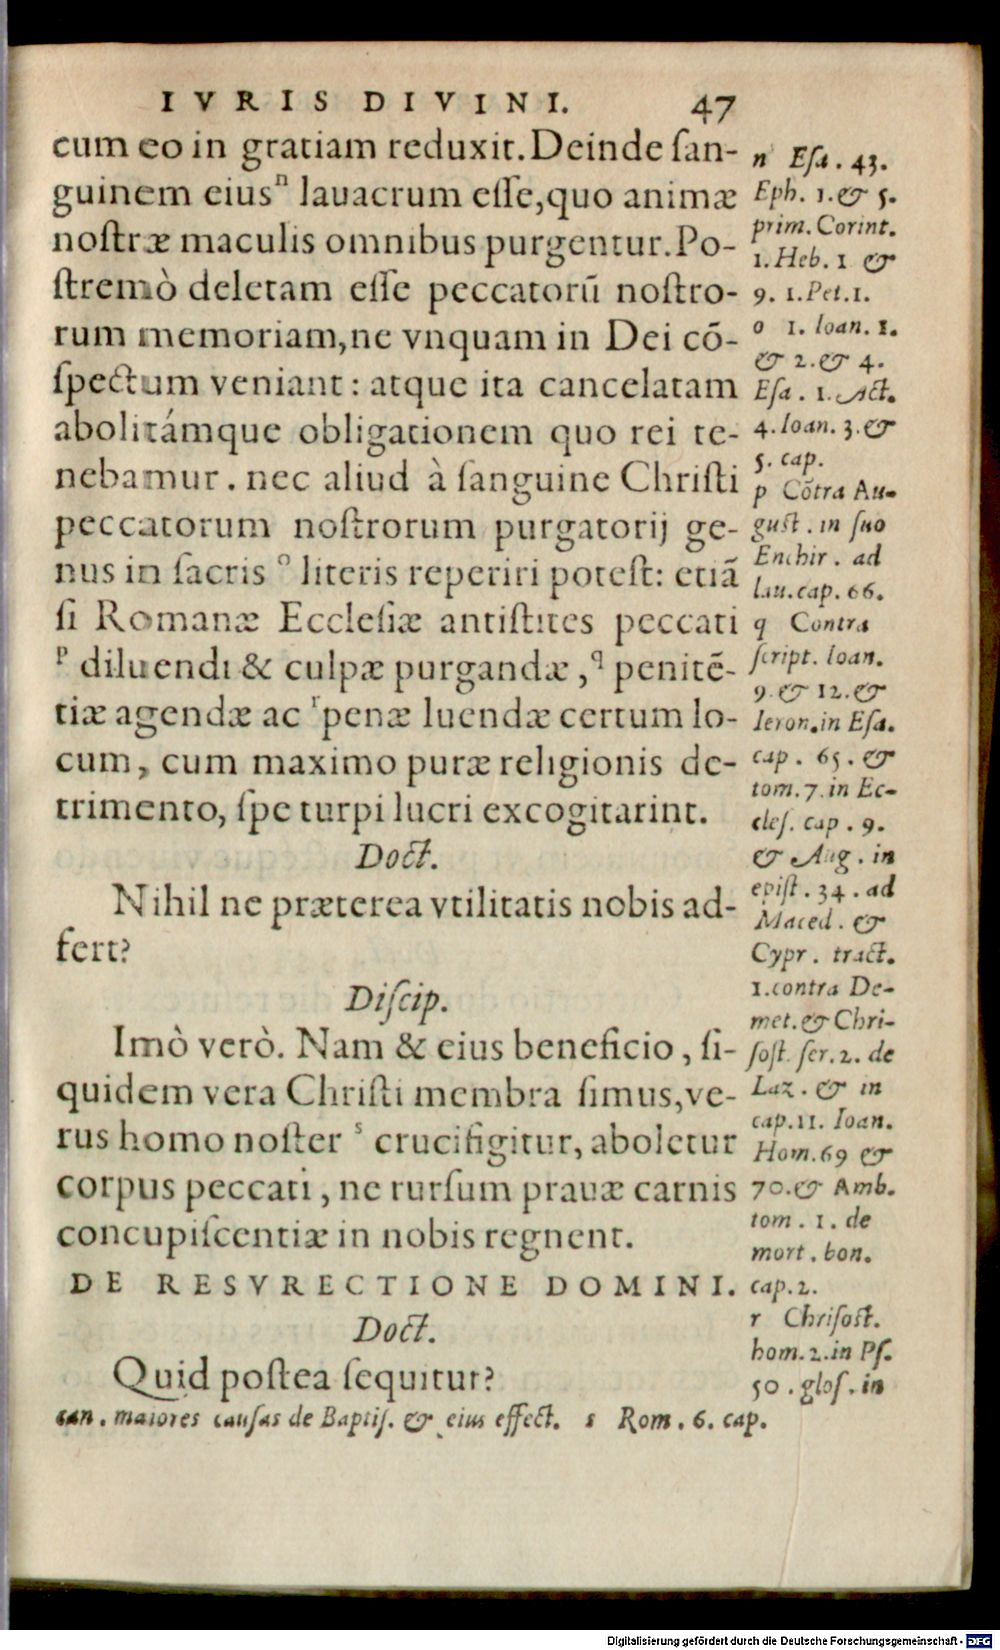 IVRIS DIVINI. 47
cum eo in gratiam reduxit. Deinde ſan-
guinem eius ⁿ lauacrum eſſe, quo animæ
noſtræ maculis omnibus purgentur. Po-
ſtremò deletam eſſe peccatorū noſtro-
rum memoriam, ne vnquam in Dei cō-
ſpectum veniant: atque ita cancelatam
abolitámque obligationem quo rei te-
nebamur. nec aliud à ſanguine Chriſti
peccatorum noſtrorum purgatorij ge-
nus in ſacris ᵒ literis reperiri poteſt: etiā
ſi Romanæ Eccleſiæ antiſtites peccati
ᵖ diluendi & culpæ purgandæ, q penitē-
tiæ agendæ ac ʳ penæ luendæ certum lo-
cum, cum maximo puræ religionis de-
trimento, ſpe turpi lucri excogitarint.
Doct.
Nihil ne præterea vtilitatis nobis ad-
fert?
Diſcip.
Imò verò. Nam & eius beneficio, ſi-
quidem vera Chriſti membra ſimus, ve-
rus homo noſter ˢ crucifigitur, aboletur
corpus peccati, ne rurſum prauæ carnis
concupiſcentiæ in nobis regnent.
DE RESVRECTIONE DOMINI.
Doct.
Quid poſtea ſequitur?
n Eſa. 43.
Eph. 1. & 5.
prim. Corint.
1. Heb. 1 &
9. 1. Pet. 1.
o 1. Ioan. 1.
& 2. & 4.
Eſa. 1. Act.
4. Ioan. 3. &
5. cap.
p Cōtra Au-
guſt. in ſuo
Enchir. ad
lau. cap. 66.
q Contra
ſcript. Ioan.
9. & 12. &
Ieron. in Eſa.
cap. 65. &
tom. 7. in Ec-
cleſ. cap. 9.
& Aug. in
epiſt. 34. ad
Maced. &
Cypr. tract.
1. contra De-
met. & Chri-
ſoſt. ſer. 2. de
Laz. & in
cap. 11. Ioan.
Hom. 69 &
70. & Amb.
tom. 1. de
mort. bon.
cap. 2.
r Chriſoſt.
hom. 2. in Pſ.
50. gloſ. in
can. maiores cauſas de Baptiſ. & eius effect. s Rom. 6. cap.
Digitalisierung gefördert durch die Deutsche Forschungsgemeinschaft - DFG